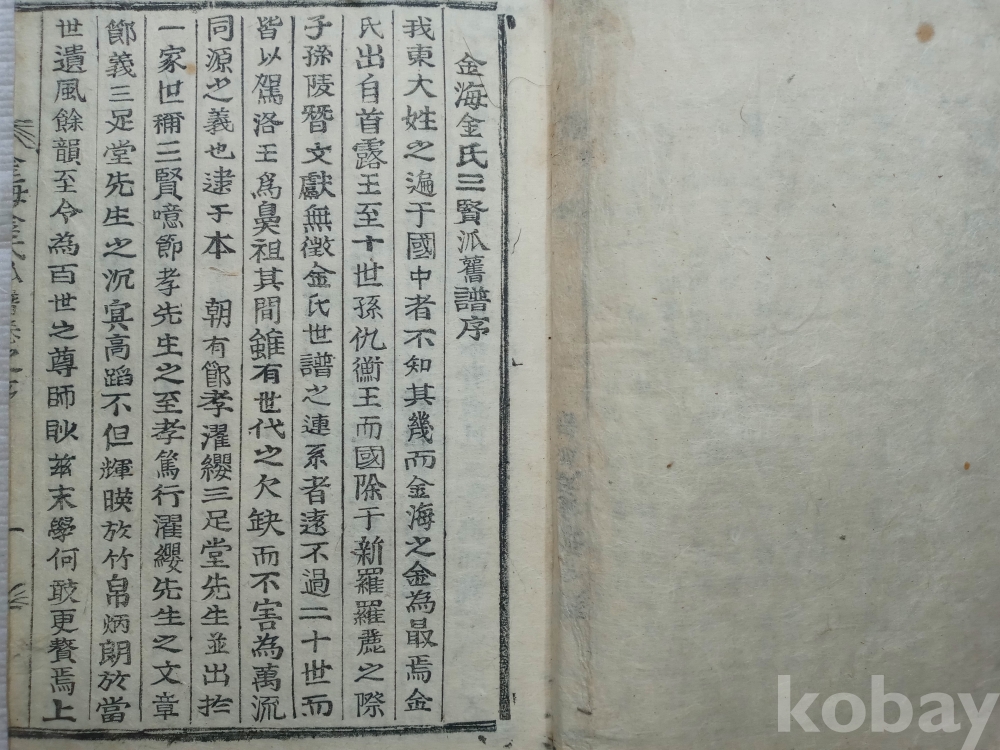 金海金氏三賢派舊譜序
我東大姓之遍于國中者不知其幾而金海之金為最焉金
氏出自首露王至十世孫仇衡王而國除于新羅羅麗之際
子孫陵替文獻無徵金氏世譜之連系者遠不過二十世而
皆以駕洛王爲鼻祖其間雖有世代之欠缺而不害為萬派
同源之義也逮于本 朝有節孝濯纓三足堂先生並出於
一家世稱三賢噫節孝先生之至孝篤行濯纓先生之文章
節義三足堂先生之沉冥高蹈不但輝暎於竹帛炳朗於當
世遺風餘韻至今為百世之尊師眇玆末學何敢更贅焉上
金海金氏 譜卷之序
一
kobay